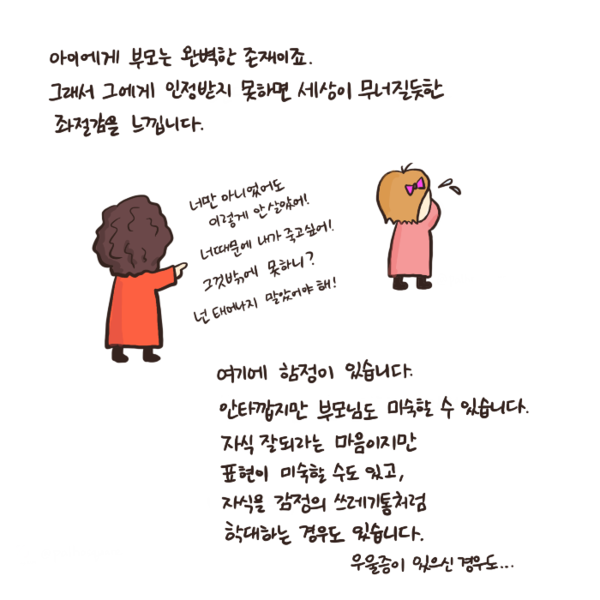 아이에게 부모는 완벽한 존재이죠.
그래서 그에게 인정받지 못하면 세상이 무너질듯한
좌절감을 느낍니다.
너만 아니었어도
이렇게 안살았어!
너때문에 내가 죽고싶어!
그것밖에 못하니?
넌 태어나지 말았어야 해!
여기에 함정이 있습니다.
안타깝지만 부모님도 미숙할 수 있습니다.
자식 잘되라는 마음이지만
표현이 미숙할 수도 있고,
자식을 감정의 쓰레기통처럼
학대하는 경우도 있습니다.
우울증이 있으신 경우도...